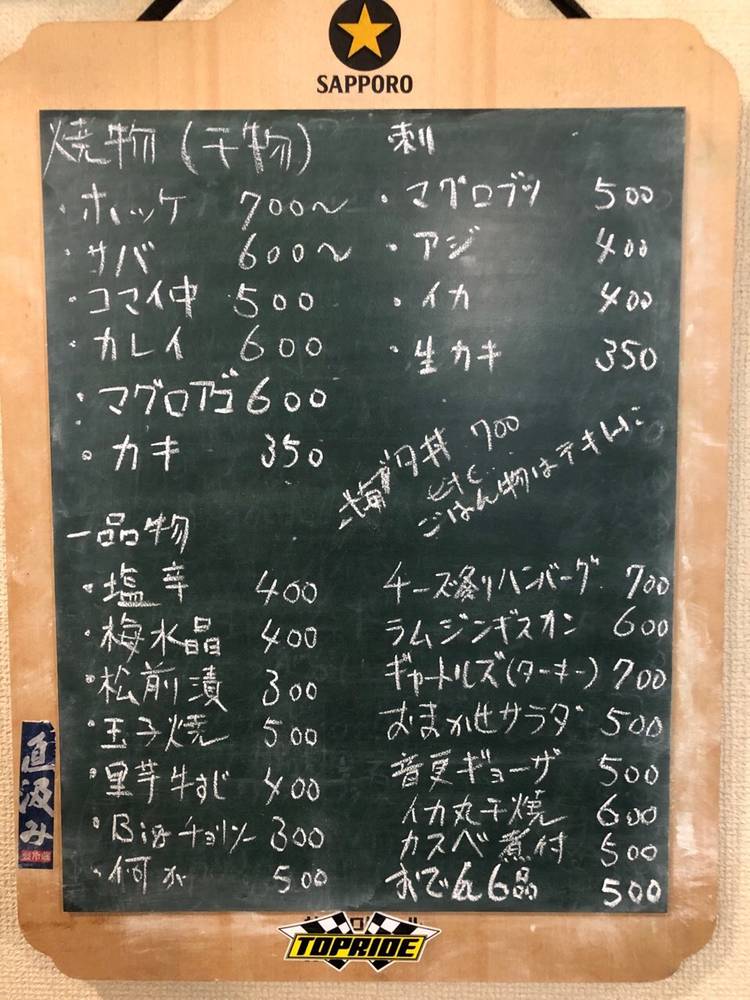 SAPPORO
焼物(干物)
・ホッケ 700〜
・サバ 600〜
・コマイ中 500
・カレイ 600
・マグロアゴ 600
・カキ 350
刺
・マグロブツ 500
・アジ 400
・イカ 400
・生カキ 350
丼 700
etc
ごはん物はテキトーに
一品物
・塩辛 400
・梅水晶 400
・松前漬 300
・玉子焼 500
・里芋牛すじ 400
・Bigチョリソー 300
・何か 500
チーズ盛りハンバーグ 700
ラムジンギスカン 600
ギャートルズ(ターキー) 700
おまかせサラダ 500
音更ギョーザ 500
イカ丸干焼 600
カスベ煮付 500
おでん6品 500
直汲み
要冷蔵
TOPRIDE